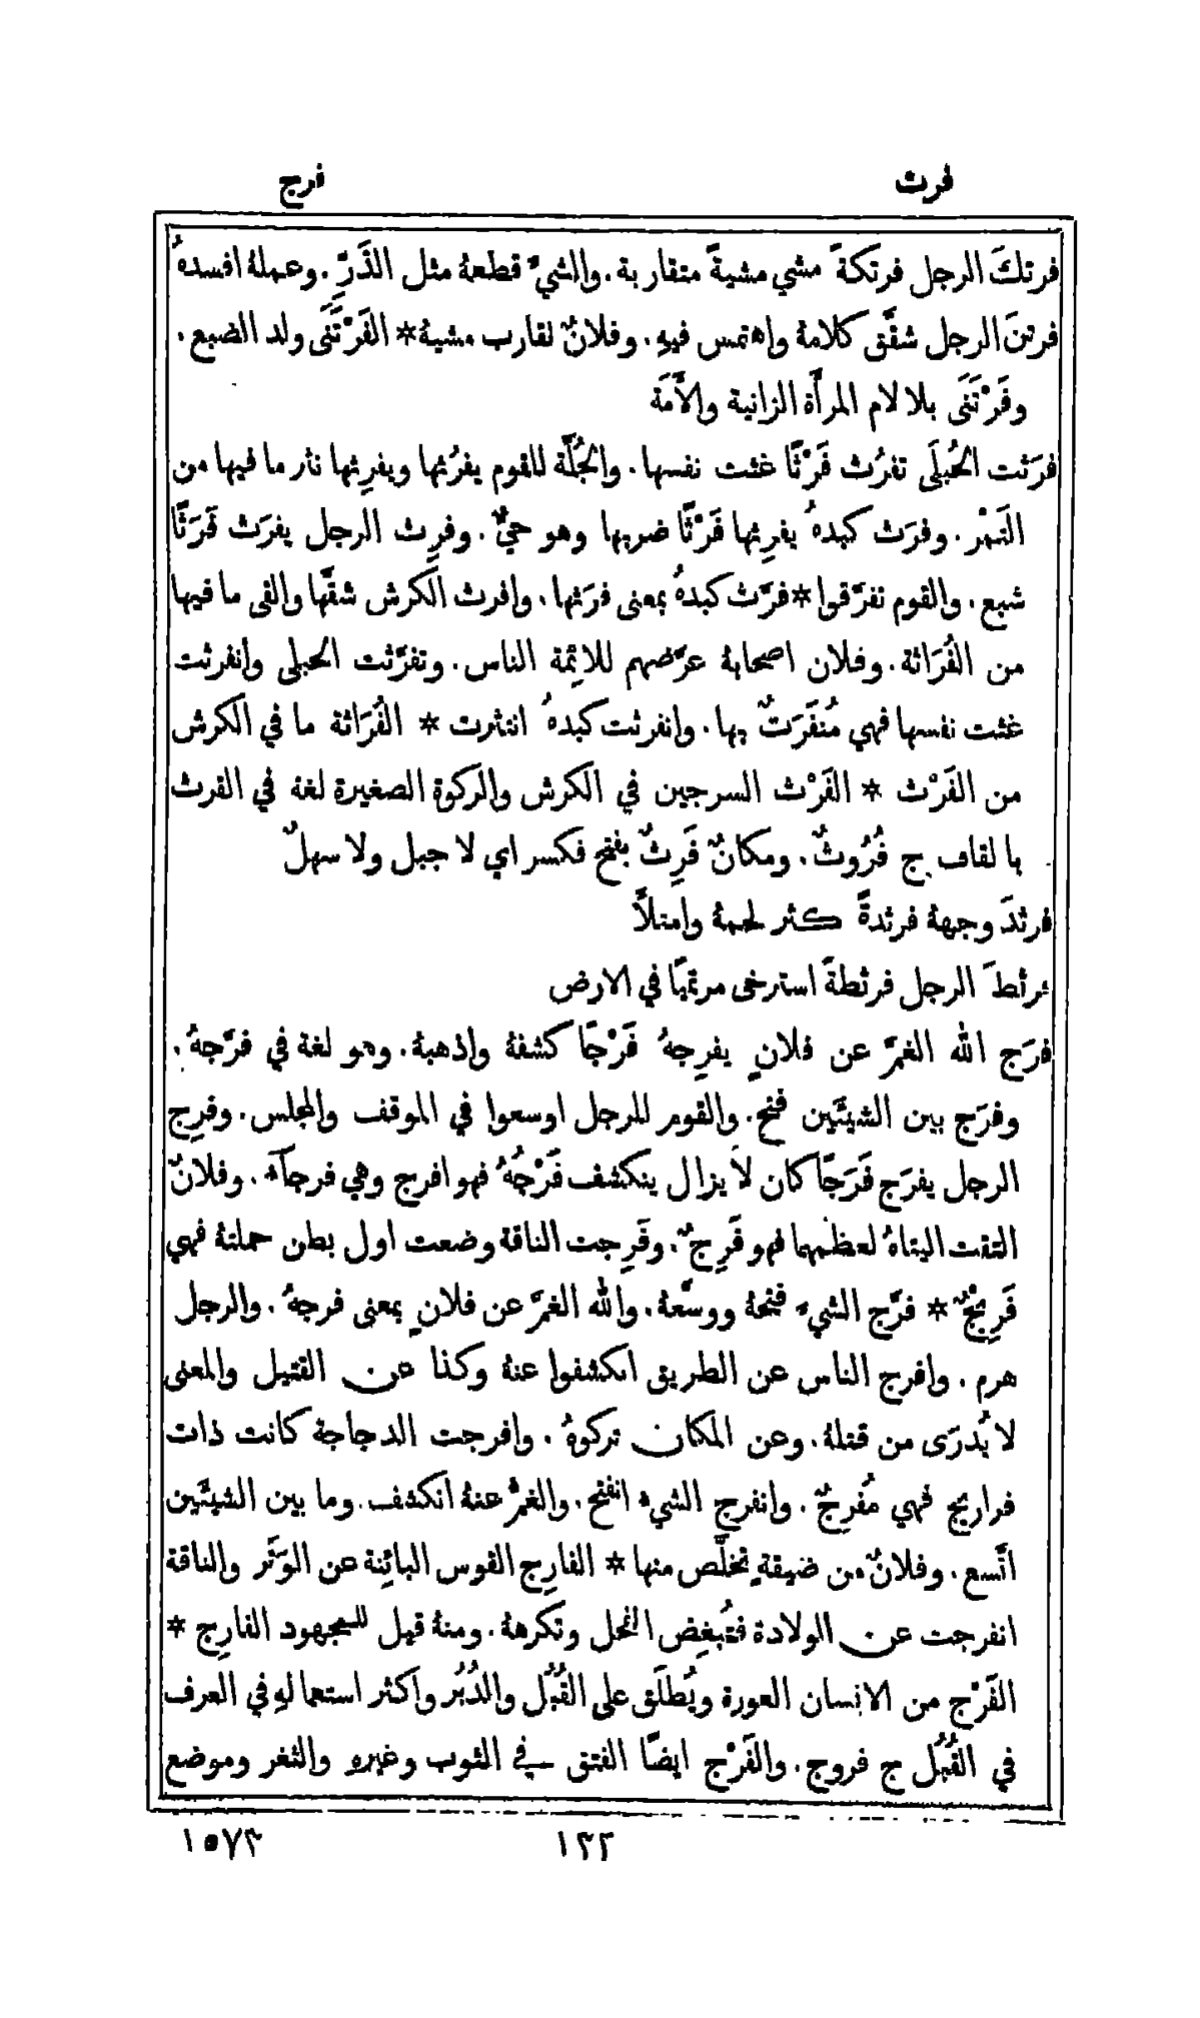 فرث
فرج
فرتكَ الرجل فرتكةً مشي مشيةً متقاربة. والشيءَ قطعهُ مثل الذَّرِّ. وعملهُ افسدهُ
فرتنَ الرجل شقَّق كلامهُ واهتمس فيهِ. وفلانٌ لقارب مشيهُ * الفَرْتَنَى ولد الضبع.
وفَرْتَنَى بلا لام المرأَة الزانية والأَمَة
فرَثت الحُبلَى تفرُث فَرْثًا غثت نفسها. والجُلَّة للقوم يفرُثها ويفرِثها نثر ما فيها من
التَمْر. وفرَث كبدهُ يفرِثها فَرْثًا ضربها وهو حيٌّ. وفرِث الرجل يفرَث فَرَثًا
شبع. والقوم تفرَّقوا * فرَّث كبدهُ بمعنى فرَثها. وافرث الكرش شقَّها والقى ما فيها
من الفُرَاثة. وفلان اصحابهُ عرَّضهم للائِمة الناس. وتفرَّثت الحبلى وانفرثت
غثت نفسها فهي مُنفَرَثٌ بها. وانفرثت كبدهُ انتثرت * الفُرَاثة ما في الكرش
من الفَرْث * الفَرْث السرجين في الكرش والركوة الصغيرة لغة في القرث
بالقاف ج فُرُوثٌ. ومكانٌ فَرِثٌ بفتح فكسر اي لا جبل ولا سهلٌ
فرثدَ وجههُ فرثدةً كثر لحمهُ وامتلأَ
فرثطَ الرجل فرثطةً استرخى مرتميًا في الارض
فرَج الله الغمَّ عن فلانٍ يفرِجهُ فَرْجًا كشفهُ واذهبهُ. وهو لغة في فرَّجهُ.
وفرَج بين الشيئَين فتح. والقوم للرجل اوسعوا في الموقف والمجلس. وفرِج
الرجل يفرَج فَرَجًا كان لا يزال ينكشف فَرْجُهُ فهو افرج وهي فرجآءُ. وفلانٌ
التقت اليتاهُ لعظمهما فهو فَرِجٌ. وفَرِجت الناقة وضعت اول بطن حملتهُ فهي
فَرِيْجٌ * فرَّج الشيءَ فتحهُ ووسَّعهُ. والله الغمَّ عن فلانٍ بمعنى فرجهُ. والرجل
هرم. وافرج الناس عن الطريق انكشفوا عنهُ وكذا عن القتيل والمعنى
لا يُدرَى من قتلهُ. وعن المكان تركوهُ. وافرجت الدجاجة كانت ذات
فراريج فهي مُفرِجٌ. وانفرج الشيءُ انفتح. والغمُّ عنهُ انكشف. وما بين الشيئَين
اتَّسع. وفلانٌ من ضيقةٍ تخلَّص منها * الفارِج القوس البائِنة عن الوَتَر والناقة
انفرجت عن الولادة فتُبغِض الفحل وتكرههُ. ومنهُ قيل للمجهود الفارِج *
الفَرْج من الانسان العورة ويُطلَق على القُبُل والدُبُر واكثر استعمالهِ في العرف
في القُبُل ج فروج. والفَرْج ايضًا الفتق في الثوب وغيرهِ والثغر وموضع
١٢٢
١٥٧٣